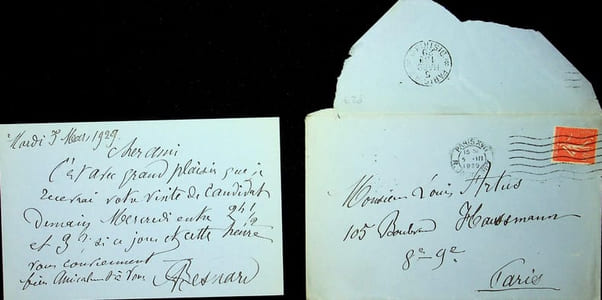 Mardi 5 Mars 1929.
Cher ami
C'est avec grand plaisir que je
recevrai votre visite de candidat
Demain Mercredi entre 2h 1/2
et 3h si ce jour et cette heure
vous conviennent
bien Amicalement à vous ABesnard
PARIS
Monsieur Louis Artus
105 Boulevard Haussmann
8e - 9e
Paris